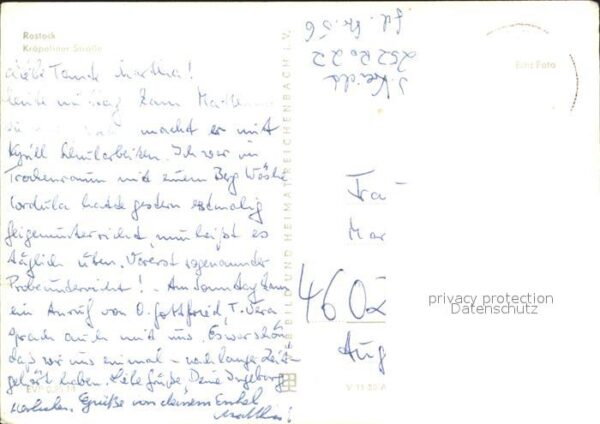 Rostock
Kröpeliner Straße
Liebe Tante Martha!
Heute mittag kam
macht er mit
Kyrill Schularbeiten. Ich war im
Trockenraum mit einem Berg Wäsche
Cordula hatte gestern erstmalig
Geigenunterricht, nun heißt es
täglich üben. Vorerst sogenannter
Probeunterricht! Am Sonntag kam
ein Anruf von O. Gottfried, T. Vera
sprach auch mit uns. Es war schön
daß wir uns einmal nach langer Zeit
gehört haben. Liebe Grüße, Deine Ingeborg
Grüße von deinem Enkel
Matthias!
BILD UND HEIMAT REICHENBACH I. V.
V 11 50 A
Echt Foto
252 Ro 22
Frau
Mar
4602
Aug
privacy protection
Datenschutz